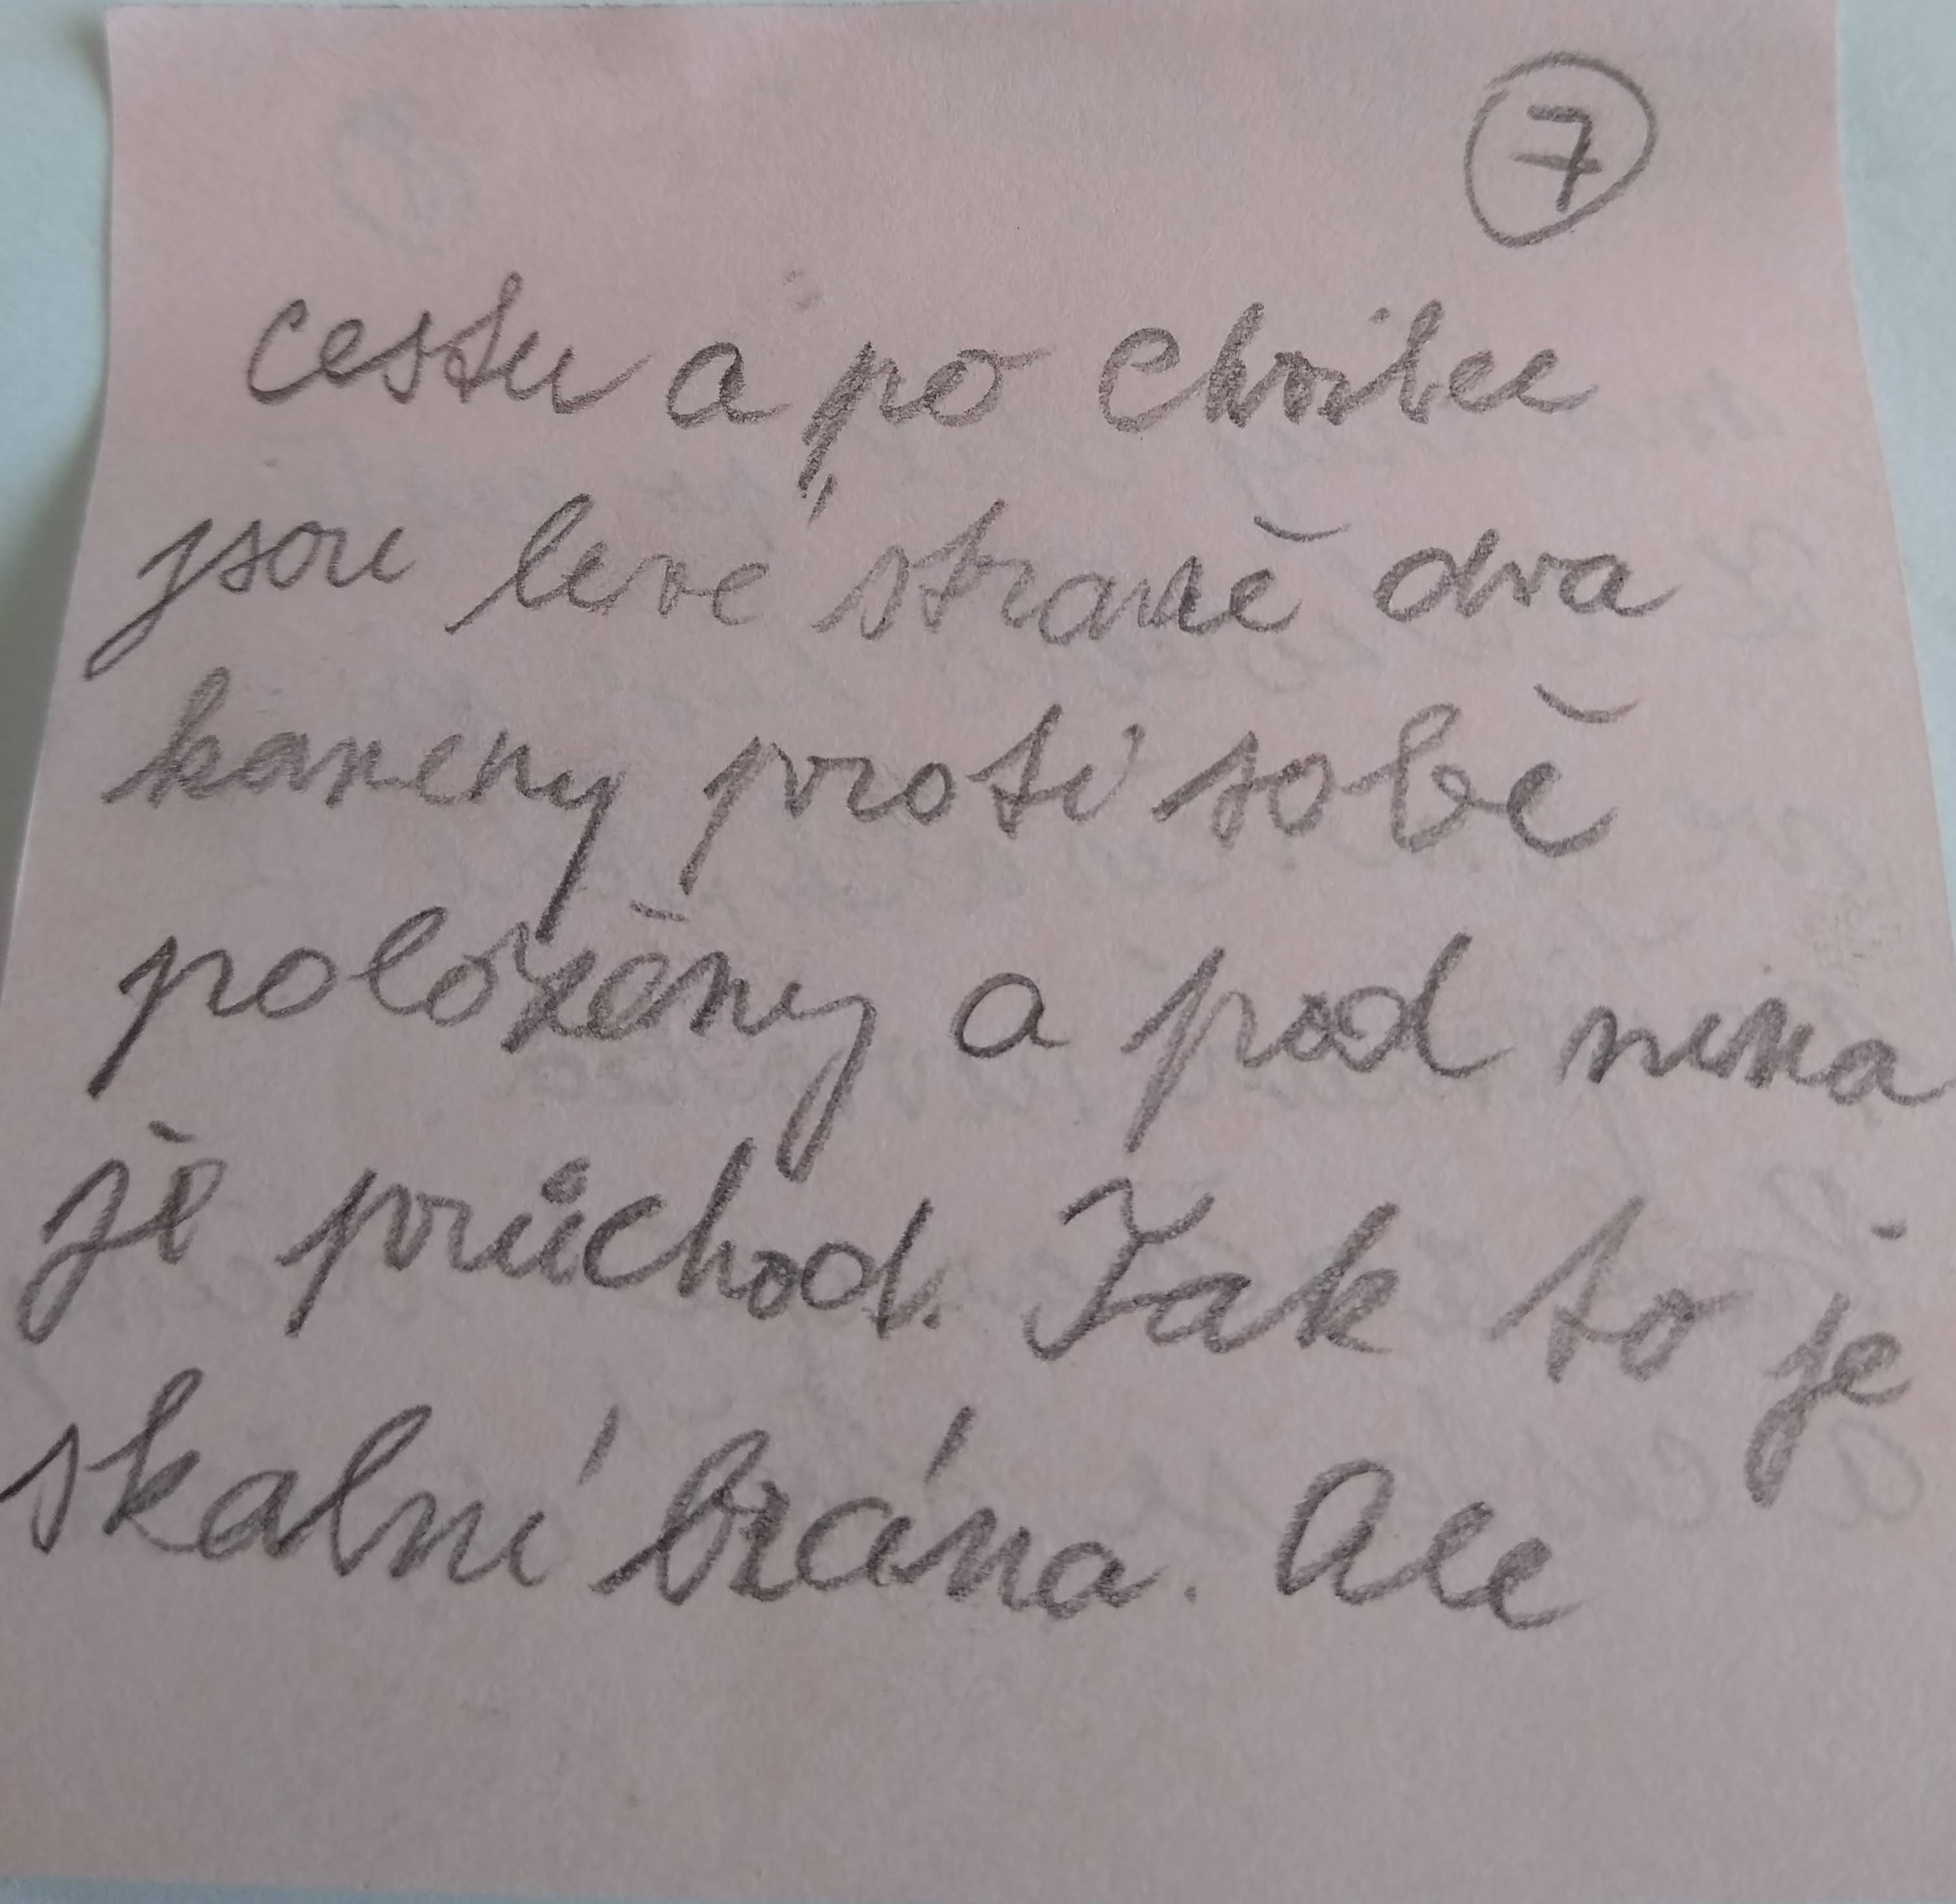 7
cestu a po chvilce
jsou levé straně dva
kameny proti sobě
položěny a pod nima
je průchod. Tak to je
skalní brána. Ale